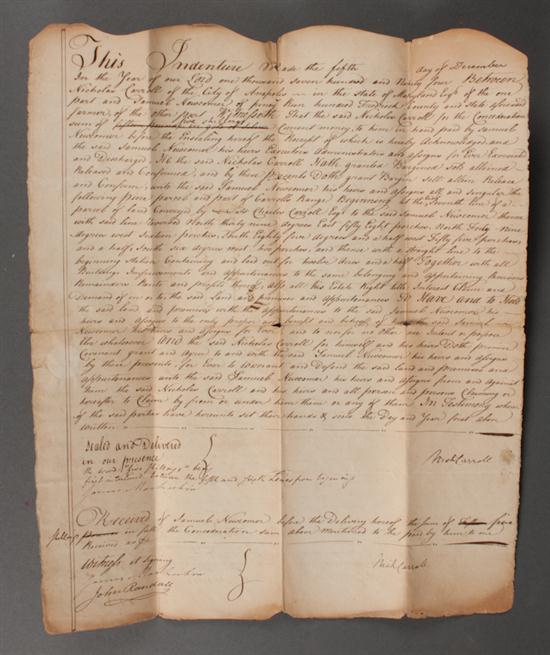 This Indenture Made the fifth day of December
In the Year of our Lord one thousand seven hundred and Ninety four Between
Nicholas Carroll of the City of Anapolis in the State of Maryland Esqr of the one
part and Samuel Newcomer of piney Run hundred Frederick County and State aforesaid
farmer, of the other part Witnesseth That the said Nicholas Carroll for the Consideration
sum of five shillings Current money, to him in hand paid by Samuel
Newcomer before the Ensealing hereof the Receipt of which is hereby Acknowledged and
the said Samuel Newcomer his heirs Executors Administrators and assigns for Ever Exonerated
and Discharged. He the said Nicholas Carroll Hath granted Bargained Sold aliened
Released and Confirmed, and by these Presents Doth grant Bargain Sell alien Release
and Confirm unto the said Samuel Newcomer his heirs and assigns all and singular the
following piece parcel and part of Carrolls Range Beginning at the Seventh line of a
parcel of Land Conveyed by Charles Carroll Esqr to the said Samuel Newcomer thence
with said line Reversed North thirty nine degrees East fifty Eight perches North Forty-nine
degrees west Sixteen perches, South Eighty five degrees and a half west fifty five perches
and a half, South Six degrees west Six perches, and thence with a Straight line to the
beginning Station, Containing and laid out for twelve acres and a half Together with all
Buildings Improvements and appurtenances to the same belonging and appertaining
Remainders Rents and profits thereof also all his Estate Right title Interest Claim and
Demand of in or to the said Land and premises and appurtenances To Have and to Hold
the said Land and premises with the appurtenances to the said Samuel Newcomer his
heirs and assigns to the only proper use benefit and behoof of him the said Samuel
Newcomer his heirs and assigns for Ever and to no for no other use Intent or purpose
What whatsoever And the said Nicholas Carroll for himself and his heirs Doth promise
Covenant grant and agree to and with the said Samuel Newcomer his heirs and assigns
by these presents, for Ever to Warrant and Defend the said land and premises and
appurtenances unto the said Samuel Newcomer his heirs and assigns from and against
him the said Nicholas Carroll and his heirs and all person and persons Claiming or
hereafter to Claim by from or under him them or any of them In Testimony whereof
of the said parties have hereunto set their hands & seals the Day and Year first above
written
Sealed and Delivered
in our presence
the word "five shillings" being
first interlined between the fifth and sixth lines from beginning
Nichs Carroll
Received of Samuel Newcomer before the Delivery hereof the sum of five
shillings in full the Consideration sum above Mentioned to be paid by him to me
Received
Witness at Signing
John Randall
Nichs Carroll